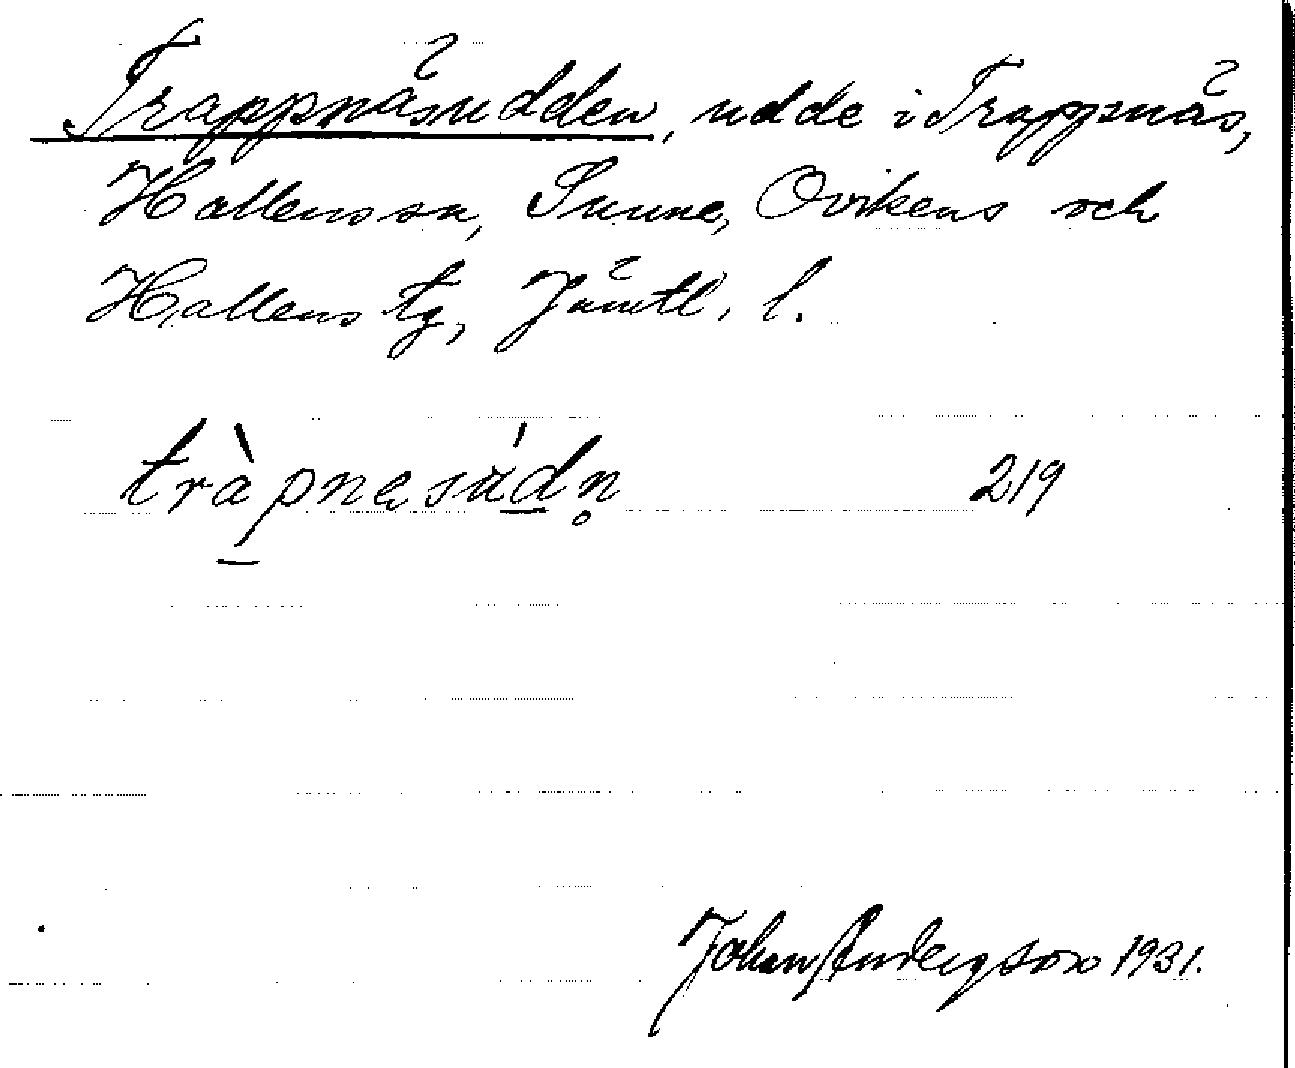 Trappnäsudden, udde i Trappnäs,
Hallens sn, Sunne, Ovikens och
Hallens tg, Jämtl. l.
tràpnesúdn̥ 219
Johan Anderson 1931.